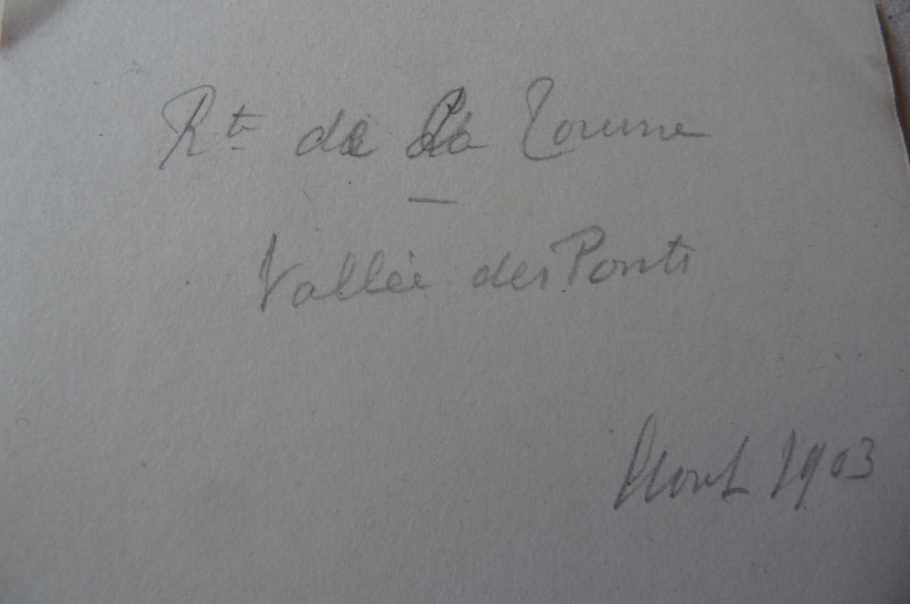 Rte de la Tourne
—
Vallée des Ponts
Août 1903